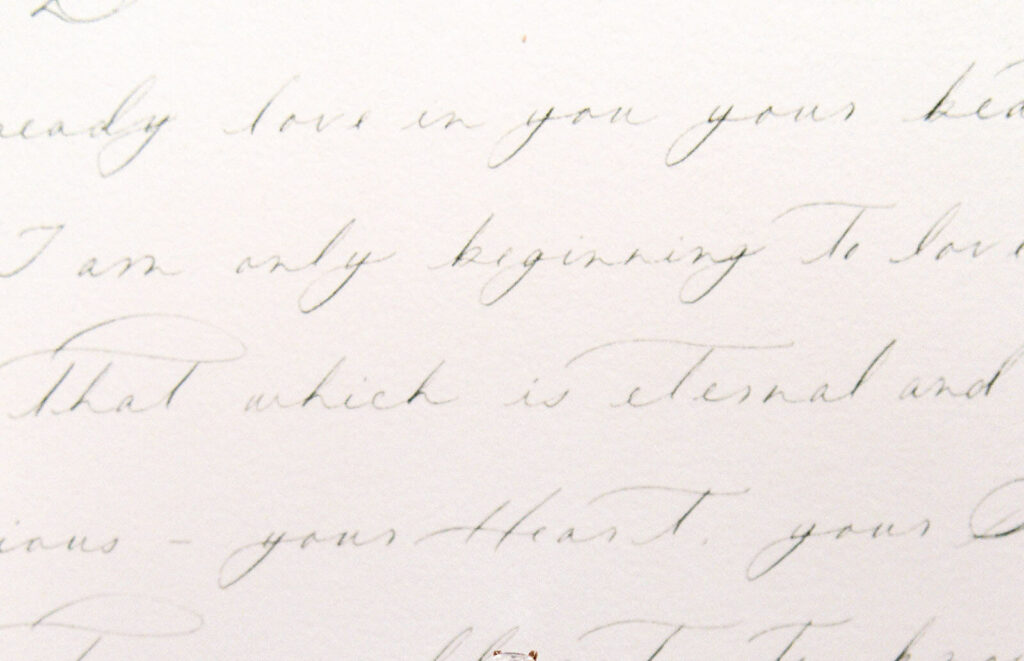 ready love in you your bea
I am only beginning to love
that which is eternal and
ious - your Heart, your